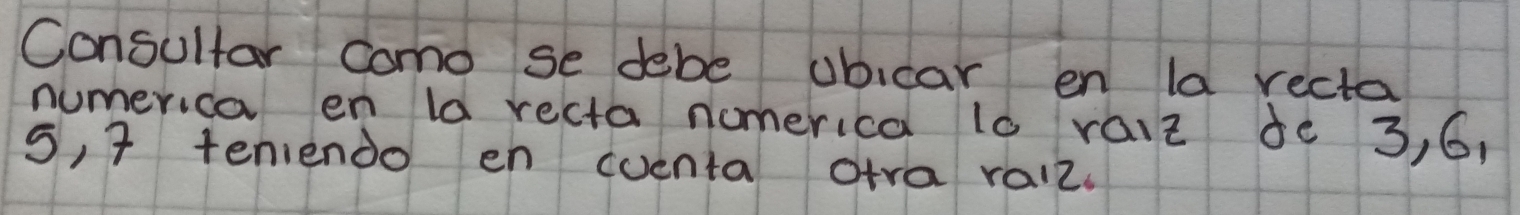 Consultar como se debe ubicar en la recta
numerica en la recta numerica la raiz de 3,6,
5,7 teniendo en cuenta otra raiz.